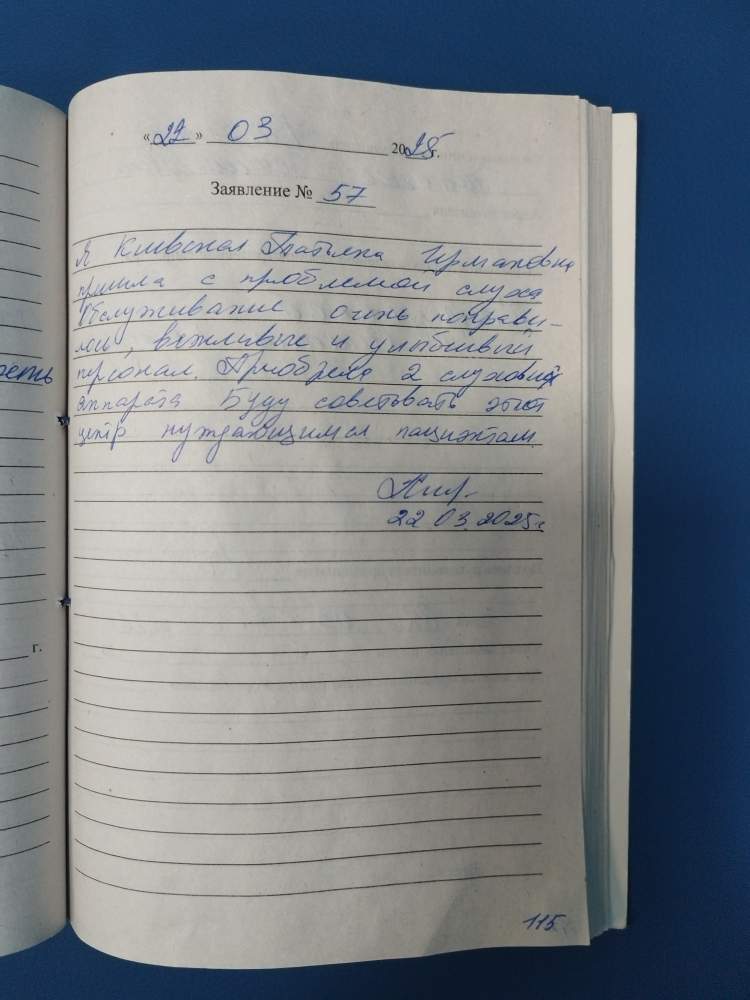 «22» 03 2025г.
Заявление № 57
Я Киевская Татьяна
пришла с проблемой слуха
Обслуживание очень понрави-
лось, вежливые и улыбчивый
персонал. Приобрела 2 слуховых
аппарата Буду советовать этот
центр нуждающимся пациэнтам.
22 03.2025г
г.
115